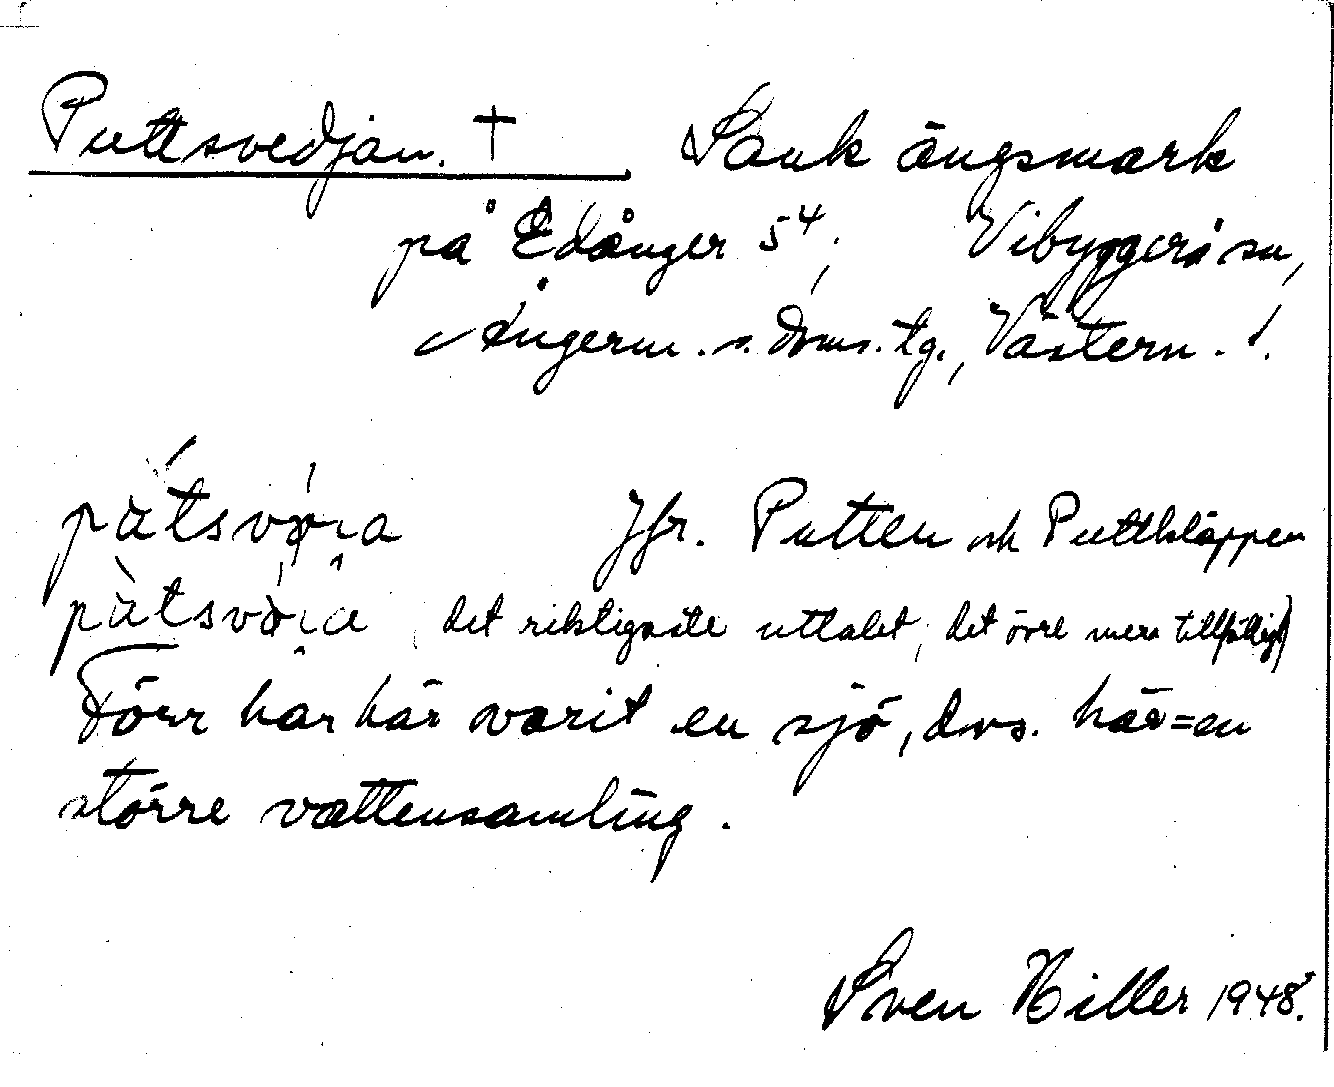 Puttsvedjan. † Sank ängsmark
på Edånger 5⁴, Vibyggerå sn,
Ångerm. s. doms. tg., Västern. !
pùtsvö̀ɩa Jfr. Putten och Puttkläppen
pùtsvö̀ɩa (det riktigaste uttalet, det övre mera tillfälligt)
Förr har här varit en sjö, dvs. här = en
större vattensamling.
Sven Hiller 1948.